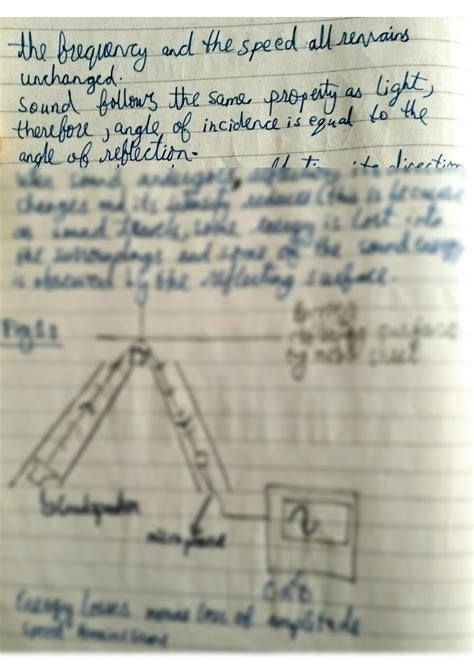 the frequency and the speed all remains
unchanged.
Sound follows the same property as light,
therefore, angle of incidence is equal to the
angle of reflection.
When sound undergoes its direction
changes and its intensity reduces (this is because
as sound travels, some energy is lost into
the surroundings and some of the sound energy
is absorbed by the reflecting surface.
Fig 1:
reflecting surface
loudspeaker
microphone
CRO
Energy losses means loss of amplitude
speed remains same